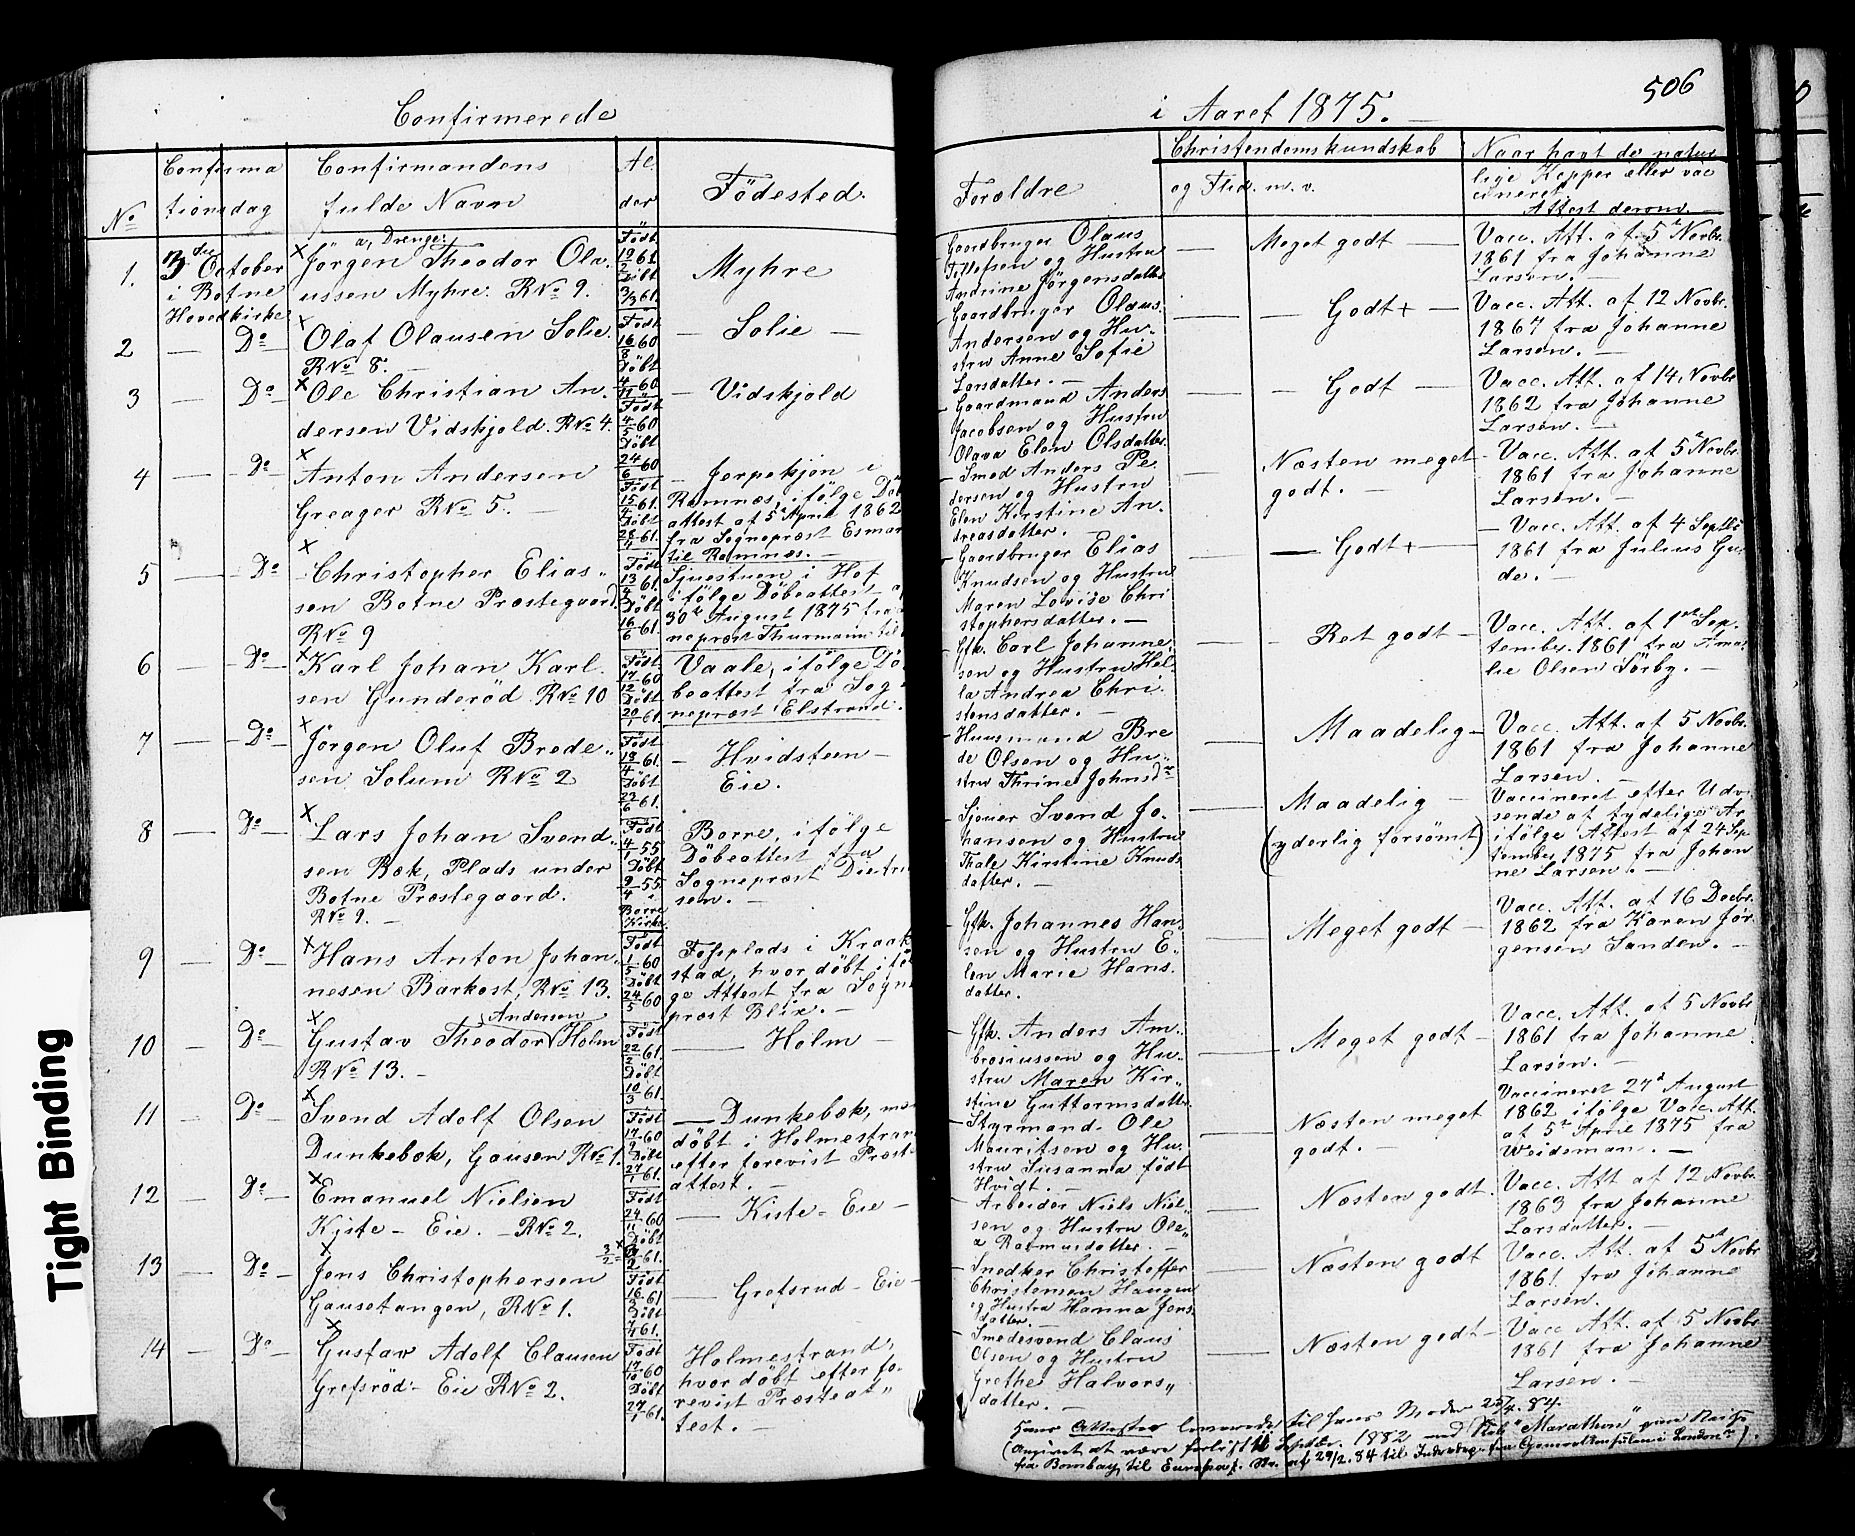 Confirmerede
i Aaret 1875.
506
No
Confirma
tionsdag
Confirmandens
fulde Navn
Al
der
Födested.
Forældre
Christendomskundskab
og Flid. m. v.
Naar havt de natur
lige Kopper eller vac
cineret
Attest derom.
1.
3die October
i Botne
Hovedkirke
a, Drenge:
× Jörgen Theodor Ola-
ussen Myhre. RNo 9.
Födt
61.
Döbt
3/3 61.
Myhre
Gaardbruger Olaus
og Hustru
Andrine Jörgensdatter
Meget godt
Vacc. Att. af 5 Novbr.
1861 fra Johanne
Larsen.
2
Do
× Olaf Olausen Solie.
RNo 8.
Födt
16/8 60
Döbt
Solie
Gaardbruger Olaus
Andersen og Hu-
stru Anne Sofie
Larsdatter.
Godt+
Vacc. Att. af 12 Novbr.
1867 fra Johanne
Larsen.
3
Do
× Ole Christian An-
dersen Vidskjold. RNo 4.
Födt
4/5 60
Döbt
24/6 60
Vidskjold
Gaardmand Anders
Jacobsen og Hustru
Olava Elen Olsdatter.
Godt
Vacc. Att. af 14 Novbr.
1862 fra Johanne
Larsen.
4
Do
× Anton Andersen
Greager RNo 5.
Födt
15/4 61.
Döbt
61.
Jerpekjön i
Ramnæs, ifölge Döb
attest af 5t April 1862
fra Sognepræst Esmar
til Ramnæs.
Smed Anders Pe
dersen og Hustru
Elen Kirstine An-
dreasdatter.
Næsten meget
godt.
Vacc. Att. af 5 Novbr.
1861 fra Johanne
Larsen.
5
Do
× Christopher Elias-
sen Botne Præstegaard.
RNo 9
Födt
13/4 61.
Döbt
16/6 61.
i Hof
ifölge Döbeattest
30t August 1875 fra
nepræst Thurmann til
Gaardbruger Elias
Knudsen og Hustru
Maren Lovise Chri
stophersdatter.
Godt+
Vacc. Att. af 4 Septbr
1861 fra Julius Gu-
de.
6
Do
× Karl Johan Karl-
sen Gunderöd RNo 10
Födt
17/12 60
Döbt
20/1 61.
Vaale, ifölge Dö
beattest fra Sog
nepræst Elstrand.
Gfk. Carl Johanne
sen og Hustru Hel
la Andrea Chri-
stensdatter.
Ret godt
Vacc. Att. af 1ste Sep-
tember 1861 fra Ama-
lie Olsen Sörby.
7
Do
× Jörgen Oluf Brede-
sen Solum RNo 2
Födt
61.
Döbt
23/6 61.
Hvidsteen
Eie.
Huusmand Bre
de Olsen og Hu-
stru Thrine Johnsdr
Maadelig
Vacc. Att. af 5 Novbr.
1861 fra Johanne
Larsen.
8
Do
× Lars Johan Svend-
sen Bæk, Plads under
Botne Præstegaard.
RNo 9.
Födt
4/1 55
Döbt
9/4 55
Borre
Kirke.
Borre, ifölge
Döbeattest fra
Sognepræst
sen.
Sjöner Svend Jo-
hansen og Hustru
Thale Kirstine Knuds
datter.
Maadelig
(yderlig forsömt)
Vaccineret efter Udvi
sende af tydelige Ar
ifölge Attest af 24 Sep
tember 1875 fra Johan
ne Larsen.
9
Do
× Hans Anton Johan-
nesen Barkost, RNo 13.
Födt
1/5 60
Döbt
24/5 60
Fossplads i Kraak
stad, hvor döbt iföl
ge Attest fra Sogne
præst Blix.
Gfk. Johannes Han-
sen og Hustru E-
len Marie Hans-
datter.
Meget godt
Vacc. Att. af 16 Decbr.
1862 fra Karen Jör
gensen Sanden.
10
Do
× Andersen
Gustav Theodor Holm
RNo 13.
Födt
22/2 61.
Döbt
10/3 61.
Holm
Gfk. Anders Am-
brosiussen og Hu-
stru Maren Kir-
stine Guttormsdatter
Meget godt
Vacc. Att. af 5 Novbr
1861 fra Johanne
Larsen.
11
Do
× Svend Adolf Olsen
Dunkebæk, Gausen RNo 1.
Födt
60
Döbt
27/1 61.
Dunkebæk, men
döbt i Holmestran
efter forevist Præst
attest.
Styrmand Ole
Mauritsen og Hu-
stru Susanna födt
Hvidt.
Næsten meget
godt.
Vaccineret 27d August
1862 ifölge Vacc. Att.
af 5t April 1875 fra
Weideman.
12
Do
× Emanuel Nielsen
Kiste-Eie. RNo 2.
Födt
24/11 60
Döbt
61.
Kiste-Eie
Arbeider Niels Niel-
sen og Hustru Ole-
a Rasmusdatter.
Næsten godt.
Vacc. Att af 12 Novbr.
1863 fra Johanne
Larsdatter.
13
Do
× Jens Christophersen
Gausetangen, RNo 1.
Födt
61
Döbt
61.
Grefsrud-Eie
Snedker Christoffer
Christensen Haugen
og Hustru Hanna Jens
datter.
Næsten godt
Vacc. Att. af 5 Novbr
1861. fra Johanne
Larsen.
14
Do
× Gustav Adolf Clausen
Grefsröd-Eie RNo 2.
Födt
17/10 60
Döbt
27/1 61.
Holmestrand,
hvor döbt efter fo-
revist Præsteat-
test.
Smedesvend Claus
Olsen og Hustru
Grethe Halvors-
datter.
Næsten godt
Vacc Att. af 5 Novbr
1861 fra Johanne
Larsen.
Attester leverede til hans Moder 25/4. 84.
(Angivet at være forlist Septbr. 1882 med Skib "Marathon" paa Reise
fra Bombay til Europa, af 29/2. 84 til fra Generalkonsulen i London).
Tight Binding